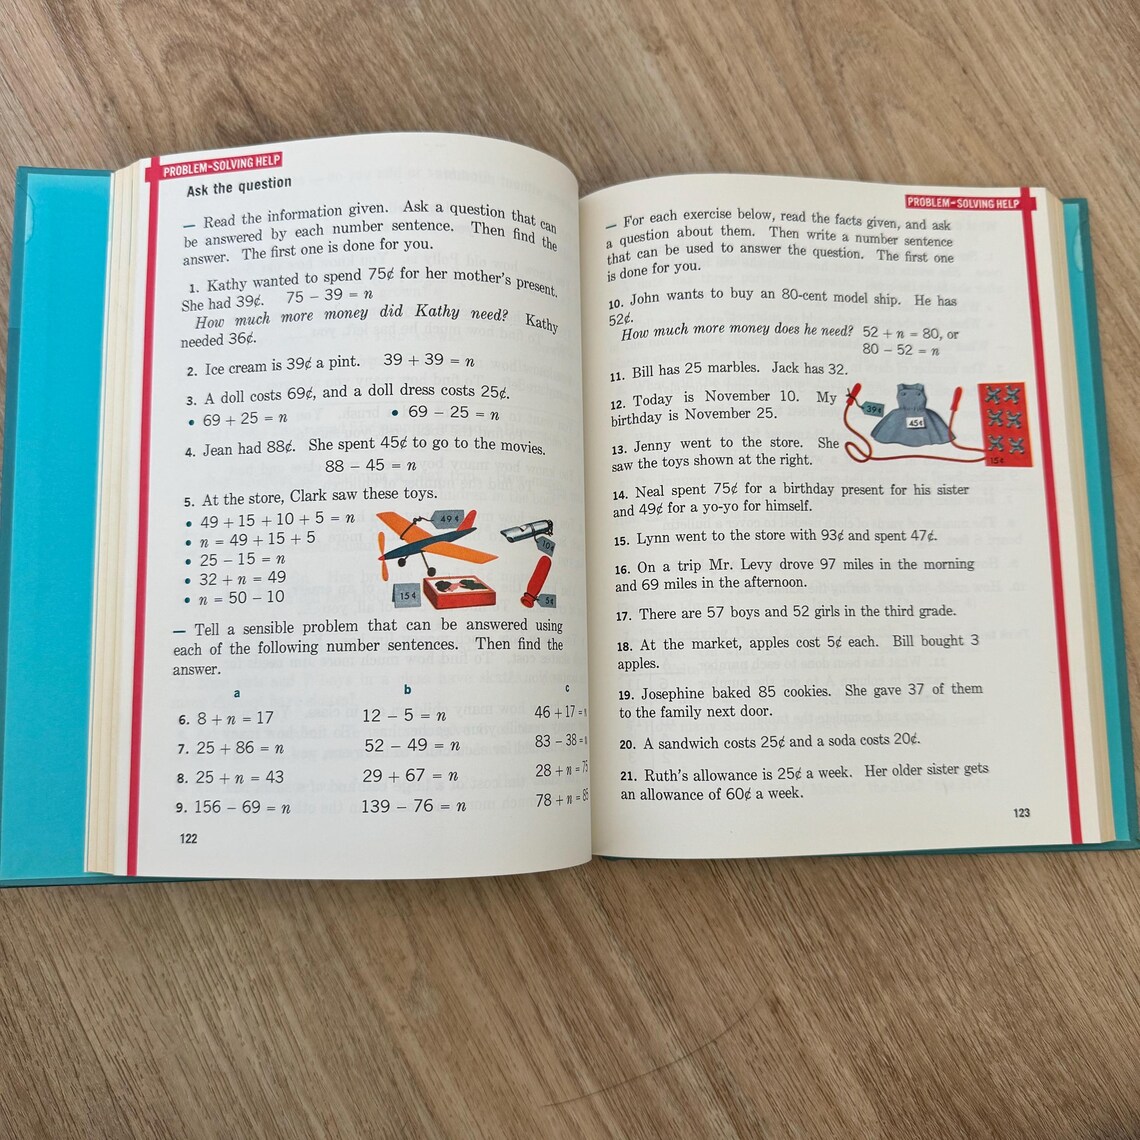 PROBLEM-SOLVING HELP
Ask the question
— Read the information given. Ask a question that can
be answered by each number sentence. Then find the
answer. The first one is done for you.
1. Kathy wanted to spend 75¢ for her mother's present.
She had 39¢. 75 − 39 = n
How much more money did Kathy need? Kathy
needed 36¢.
2. Ice cream is 39¢ a pint. 39 + 39 = n
3. A doll costs 69¢, and a doll dress costs 25¢.
• 69 + 25 = n • 69 − 25 = n
4. Jean had 88¢. She spent 45¢ to go to the movies.
88 − 45 = n
5. At the store, Clark saw these toys.
• 49 + 15 + 10 + 5 = n
• n = 49 + 15 + 5
• 25 − 15 = n
• 32 + n = 49
• n = 50 − 10
49¢
10¢
15¢
5¢
— Tell a sensible problem that can be answered using
each of the following number sentences. Then find the
answer.
a b c
6. 8 + n = 17 12 − 5 = n 46 + 17 = n
7. 25 + 86 = n 52 − 49 = n 83 − 38 = n
8. 25 + n = 43 29 + 67 = n 28 + n = 75
9. 156 − 69 = n 139 − 76 = n 78 + n = 85
122
PROBLEM-SOLVING HELP
— For each exercise below, read the facts given, and ask
a question about them. Then write a number sentence
that can be used to answer the question. The first one
is done for you.
10. John wants to buy an 80-cent model ship. He has
52¢.
How much more money does he need? 52 + n = 80, or
80 − 52 = n
11. Bill has 25 marbles. Jack has 32.
12. Today is November 10. My
birthday is November 25.
13. Jenny went to the store. She
saw the toys shown at the right.
39¢
45¢
15¢
14. Neal spent 75¢ for a birthday present for his sister
and 49¢ for a yo-yo for himself.
15. Lynn went to the store with 93¢ and spent 47¢.
16. On a trip Mr. Levy drove 97 miles in the morning
and 69 miles in the afternoon.
17. There are 57 boys and 52 girls in the third grade.
18. At the market, apples cost 5¢ each. Bill bought 3
apples.
19. Josephine baked 85 cookies. She gave 37 of them
to the family next door.
20. A sandwich costs 25¢ and a soda costs 20¢.
21. Ruth's allowance is 25¢ a week. Her older sister gets
an allowance of 60¢ a week.
123